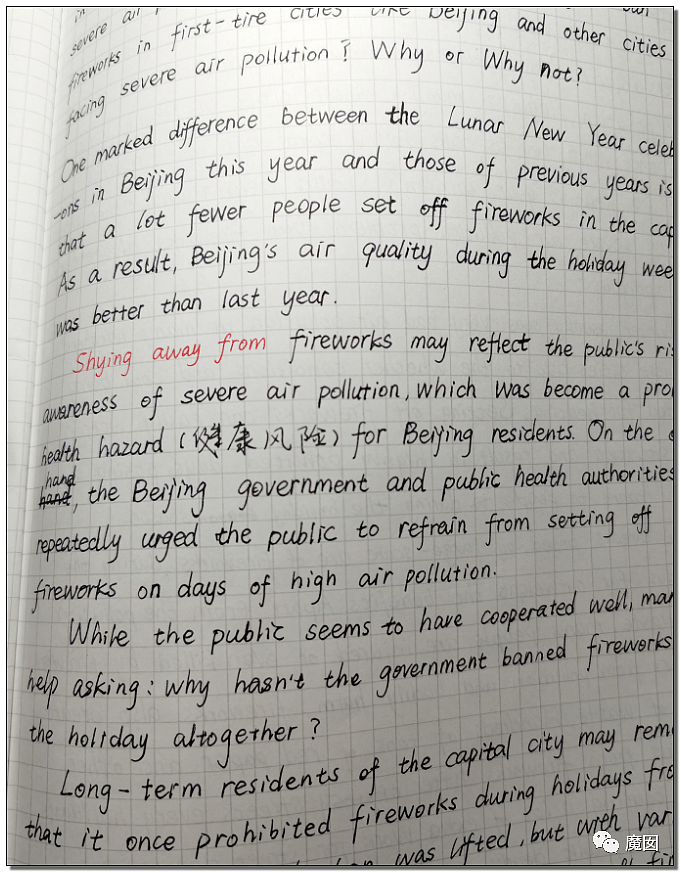 in
severe air
fireworks in first-tire cities like Beijing and other cities
facing severe air pollution? Why or Why not?
One marked difference between the Lunar New Year celeb
-ons in Beijing this year and those of previous years is
that a lot fewer people set off fireworks in the cap
As a result, Beijing's air quality during the holiday wee
was better than last year.
Shying away from fireworks may reflect the public's ris
awareness of severe air pollution, which was become a pro
health hazard (健康风险) for Beijing residents. On the o
hand
hand, the Beijing government and public health authorities
repeatedly urged the public to refrain from setting off
fireworks on days of high air pollution.
While the public seems to have cooperated well, man
help asking: why hasn't the government banned fireworks
the holiday altogether?
Long-term residents of the capital city may rem
that it once prohibited fireworks during holidays fro
was lifted, but with var
魔囡